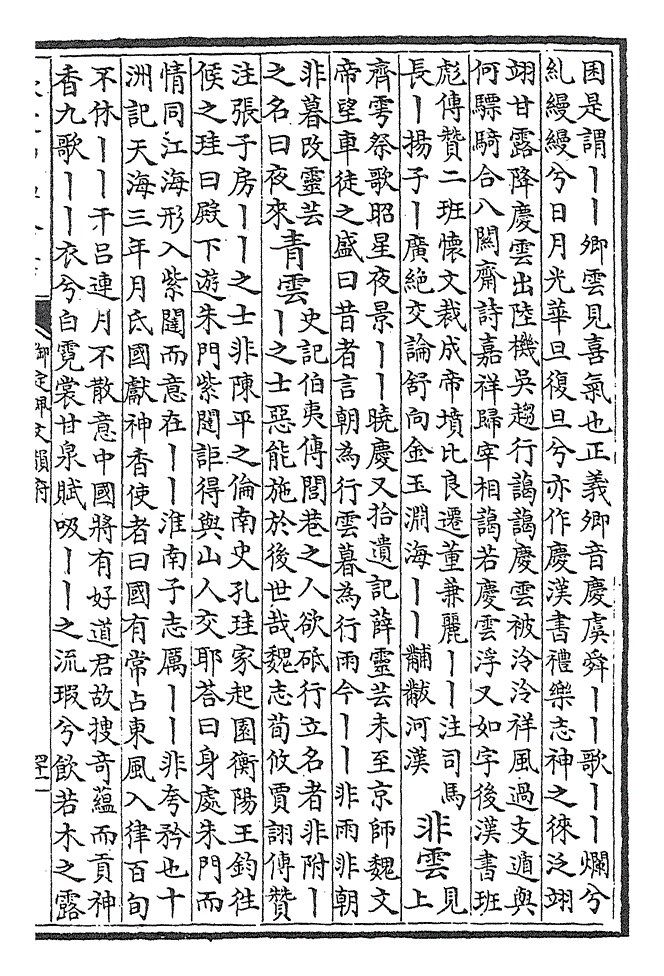 困是謂丨丨卿雲見喜氣也正義卿音慶虞舜丨丨歌丨丨爛兮
糺縵縵兮日月光華旦復旦兮亦作慶漢書禮樂志神之徠泛翊
翊甘露降慶雲出陸機吳趨行藹藹慶雲被泠泠祥風過支遁與
何驃騎合八關齋詩嘉祥歸宰相藹若慶雲浮又如字後漢書班
彪傳贊二班懷文裁成帝墳比良遷董兼麗丨丨注司馬
長丨揚子丨廣絕交論舒向金玉淵海丨丨黼黻河漢
非雲
見
上
齊雩祭歌昭星夜景丨丨曉慶又拾遺記薛靈芸未至京師魏文
帝望車徒之盛曰昔者言朝為行雲暮為行雨今丨丨非雨非朝
非暮改靈芸
之名曰夜來
青雲
史記伯夷傳閭巷之人欲砥行立名者非附丨
丨之士惡能施於後世哉魏志荀攸賈詡傳贊
注張子房丨丨之士非陳平之倫南史孔珪家起園衡陽王鈞往
候之珪曰殿下遊朱門紫闥詎得與山人交耶荅曰身處朱門而
情同江海形入紫闥而意在丨丨淮南子志厲丨丨非夸矜也十
洲記天海三年月氏國獻神香使者曰國有常占東風入律百旬
不休丨丨干呂連月不散意中國將有好道君故搜奇蘊而貢神
香九歌丨丨衣兮白霓裳甘泉賦吸丨丨之流瑕兮飲若木之露
御定佩文韻府